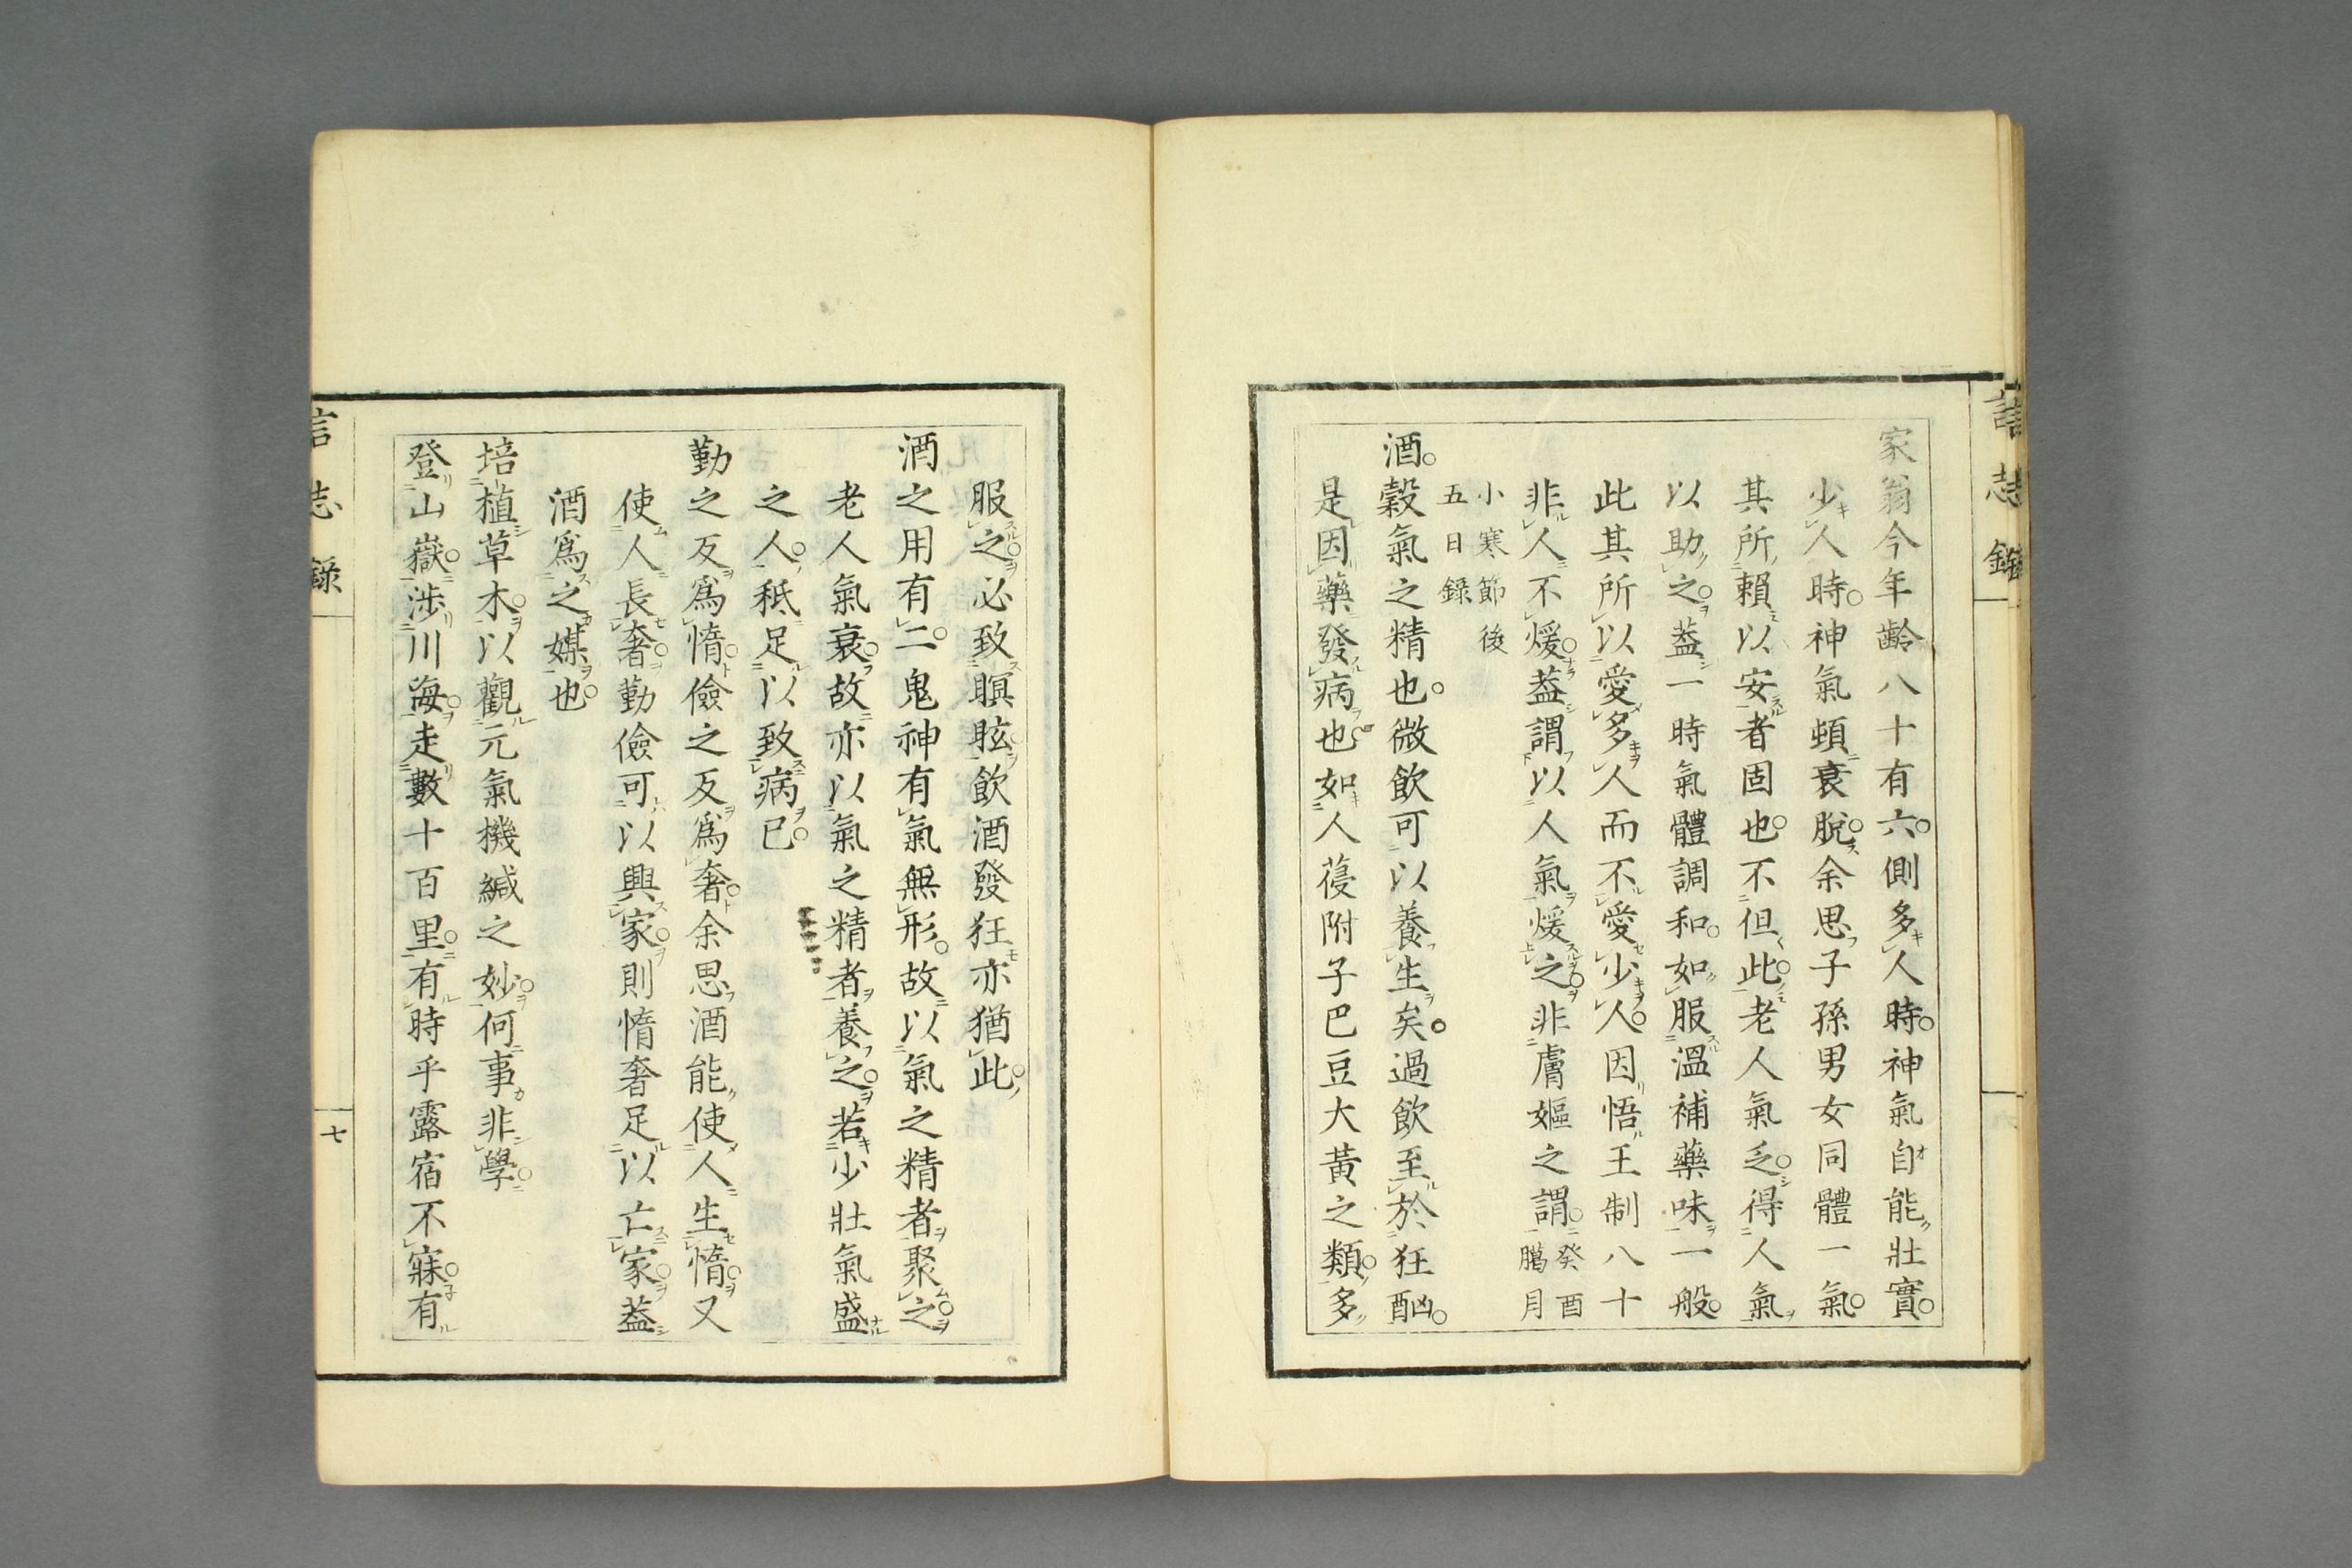 家翁今年齡八十有六側多人時神氣自能壯實
少人時神氣頓衰脫余思子孫男女同體一氣
其所賴以安者固也不但此老人氣乏得人氣
以助之蓋一時氣體調和如服溫補藥味一般
此其所以愛多人而不愛少人因悟王制八十
非人不煖蓋謂以人氣煖之非膚嫗之謂癸酉
臈月
小寒節後
五日録
酒穀氣之精也微飲可以養生矣過飲至於狂酗
是因藥發病也如人葠附子巴豆大黃之類多
服之必致瞑眩飲酒發狂亦猶此
酒之用有二鬼神有氣無形故以氣之精者聚之
老人氣衰故亦以氣之精者養之若少壯氣盛
之人秪足以致病已
勤之反爲惰儉之反爲奢余思酒能使人生惰又
使人長奢勤儉可以興家則惰奢足以亡家蓋
酒爲之媒也
培植草木以觀元氣機緘之妙何事非學
登山嶽涉川海走數十百里有時乎露宿不寐有
言志録
七